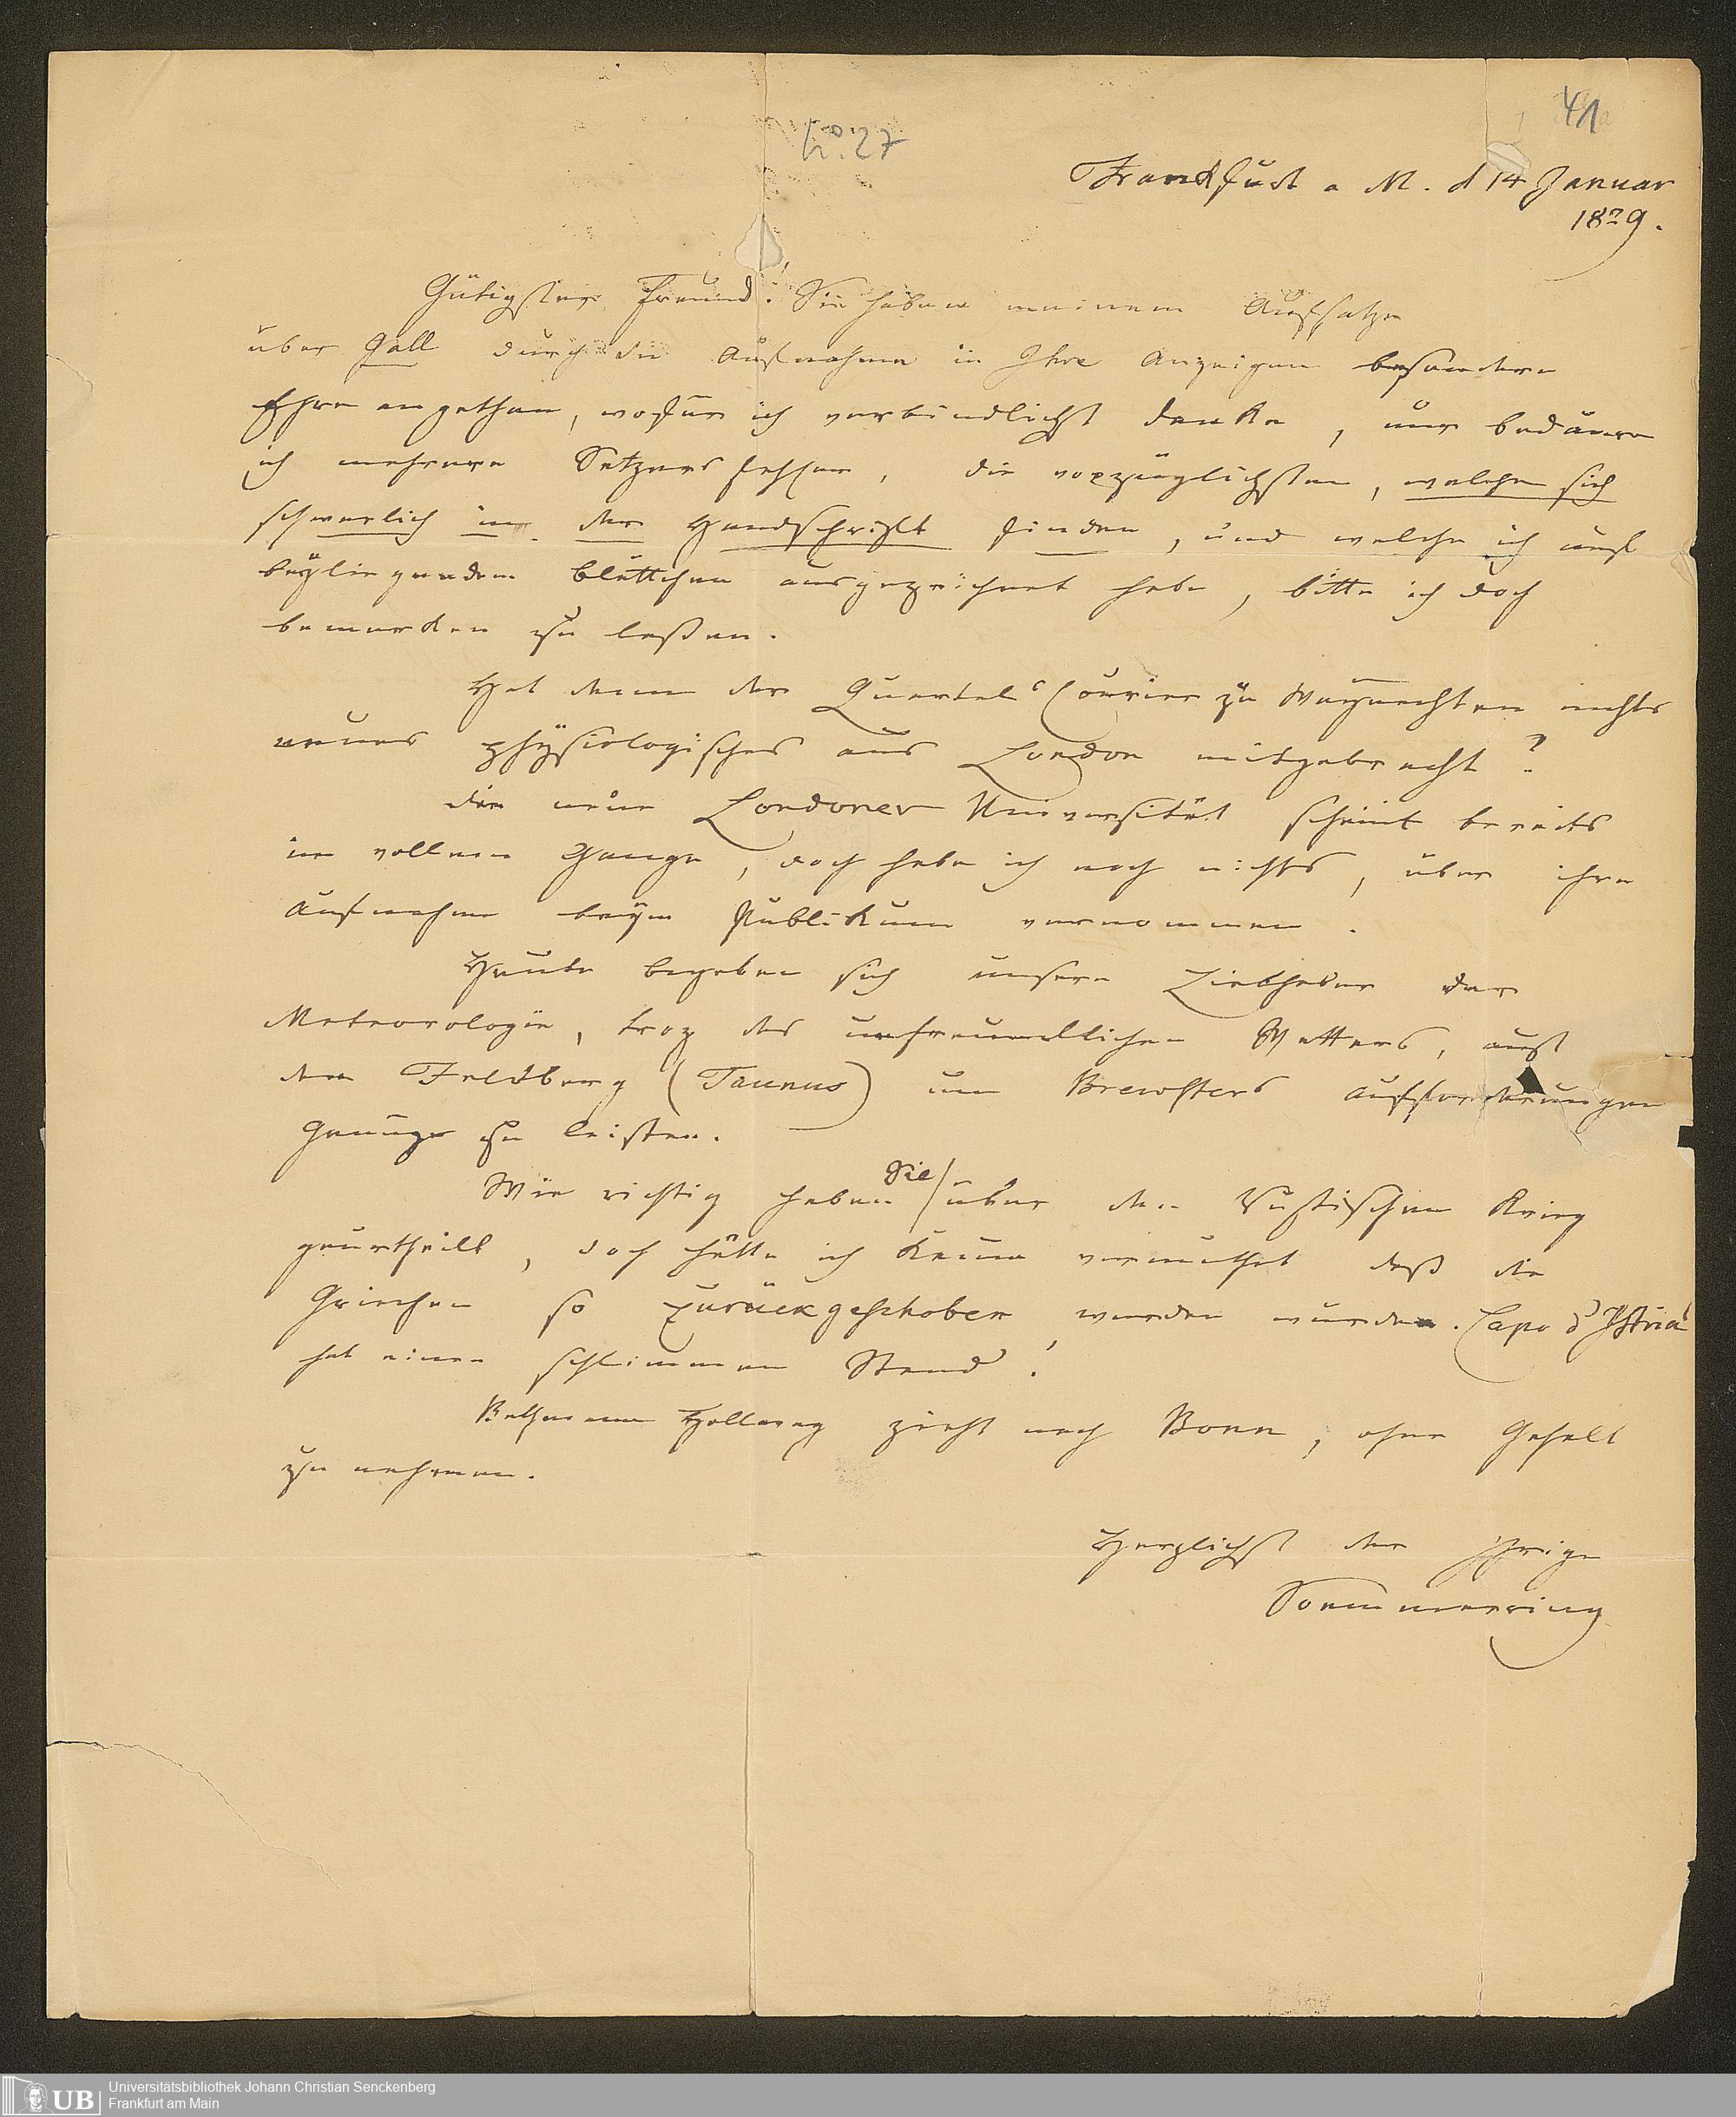 41
N.° 27
Frankfurt a M. d 14 Januar
1829.
Gütigster Freund! Sie haben meinem Aufsatze
über Gall durch die Aufnahme in Ihre Anzeigen besondere
Ehre angethan, wofür ich verbindlichst danke, nur bedaure
ich mehrere Setzersfehler, die vorzüglichsten, welche sich
schwerlich in der Handschrift finden, und welche ich auf
beyliegendem Blättchen ausgezeichnet habe, bitte ich doch
bemerken zu laßen.
Hat denn der Quartal Courier zu Weynachten nichts
neues physiologisches aus London mitgebracht?
Die neue Londoner Universität scheint bereits
in vollem Gange, doch habe ich noch nichts, über ihre
Aufnahme beym Publikum vernommen.
Heute begeben sich unsere Liebhaber der
Meteorologie, troz des unfreundlichen Wetters, auf
den Feldberg (Taunus) um Brewsters Aufforderungen
Genüge zu leisten.
Wie richtig haben Sie über den Rußischen Krieg
geurtheilt, doch hätte ich kaum vermuthet daß die
Griechen so zurückgeschoben werden würden. Capo d'Istria
hat einen schlimmen Stand!
Bethmann Hollweg zieht nach Bonn, ohne Gehalt
zu nehmen.
Herzlichst der Ihrige
Soemmerring
UB
Universitätsbibliothek Johann Christian Senckenberg
Frankfurt am Main